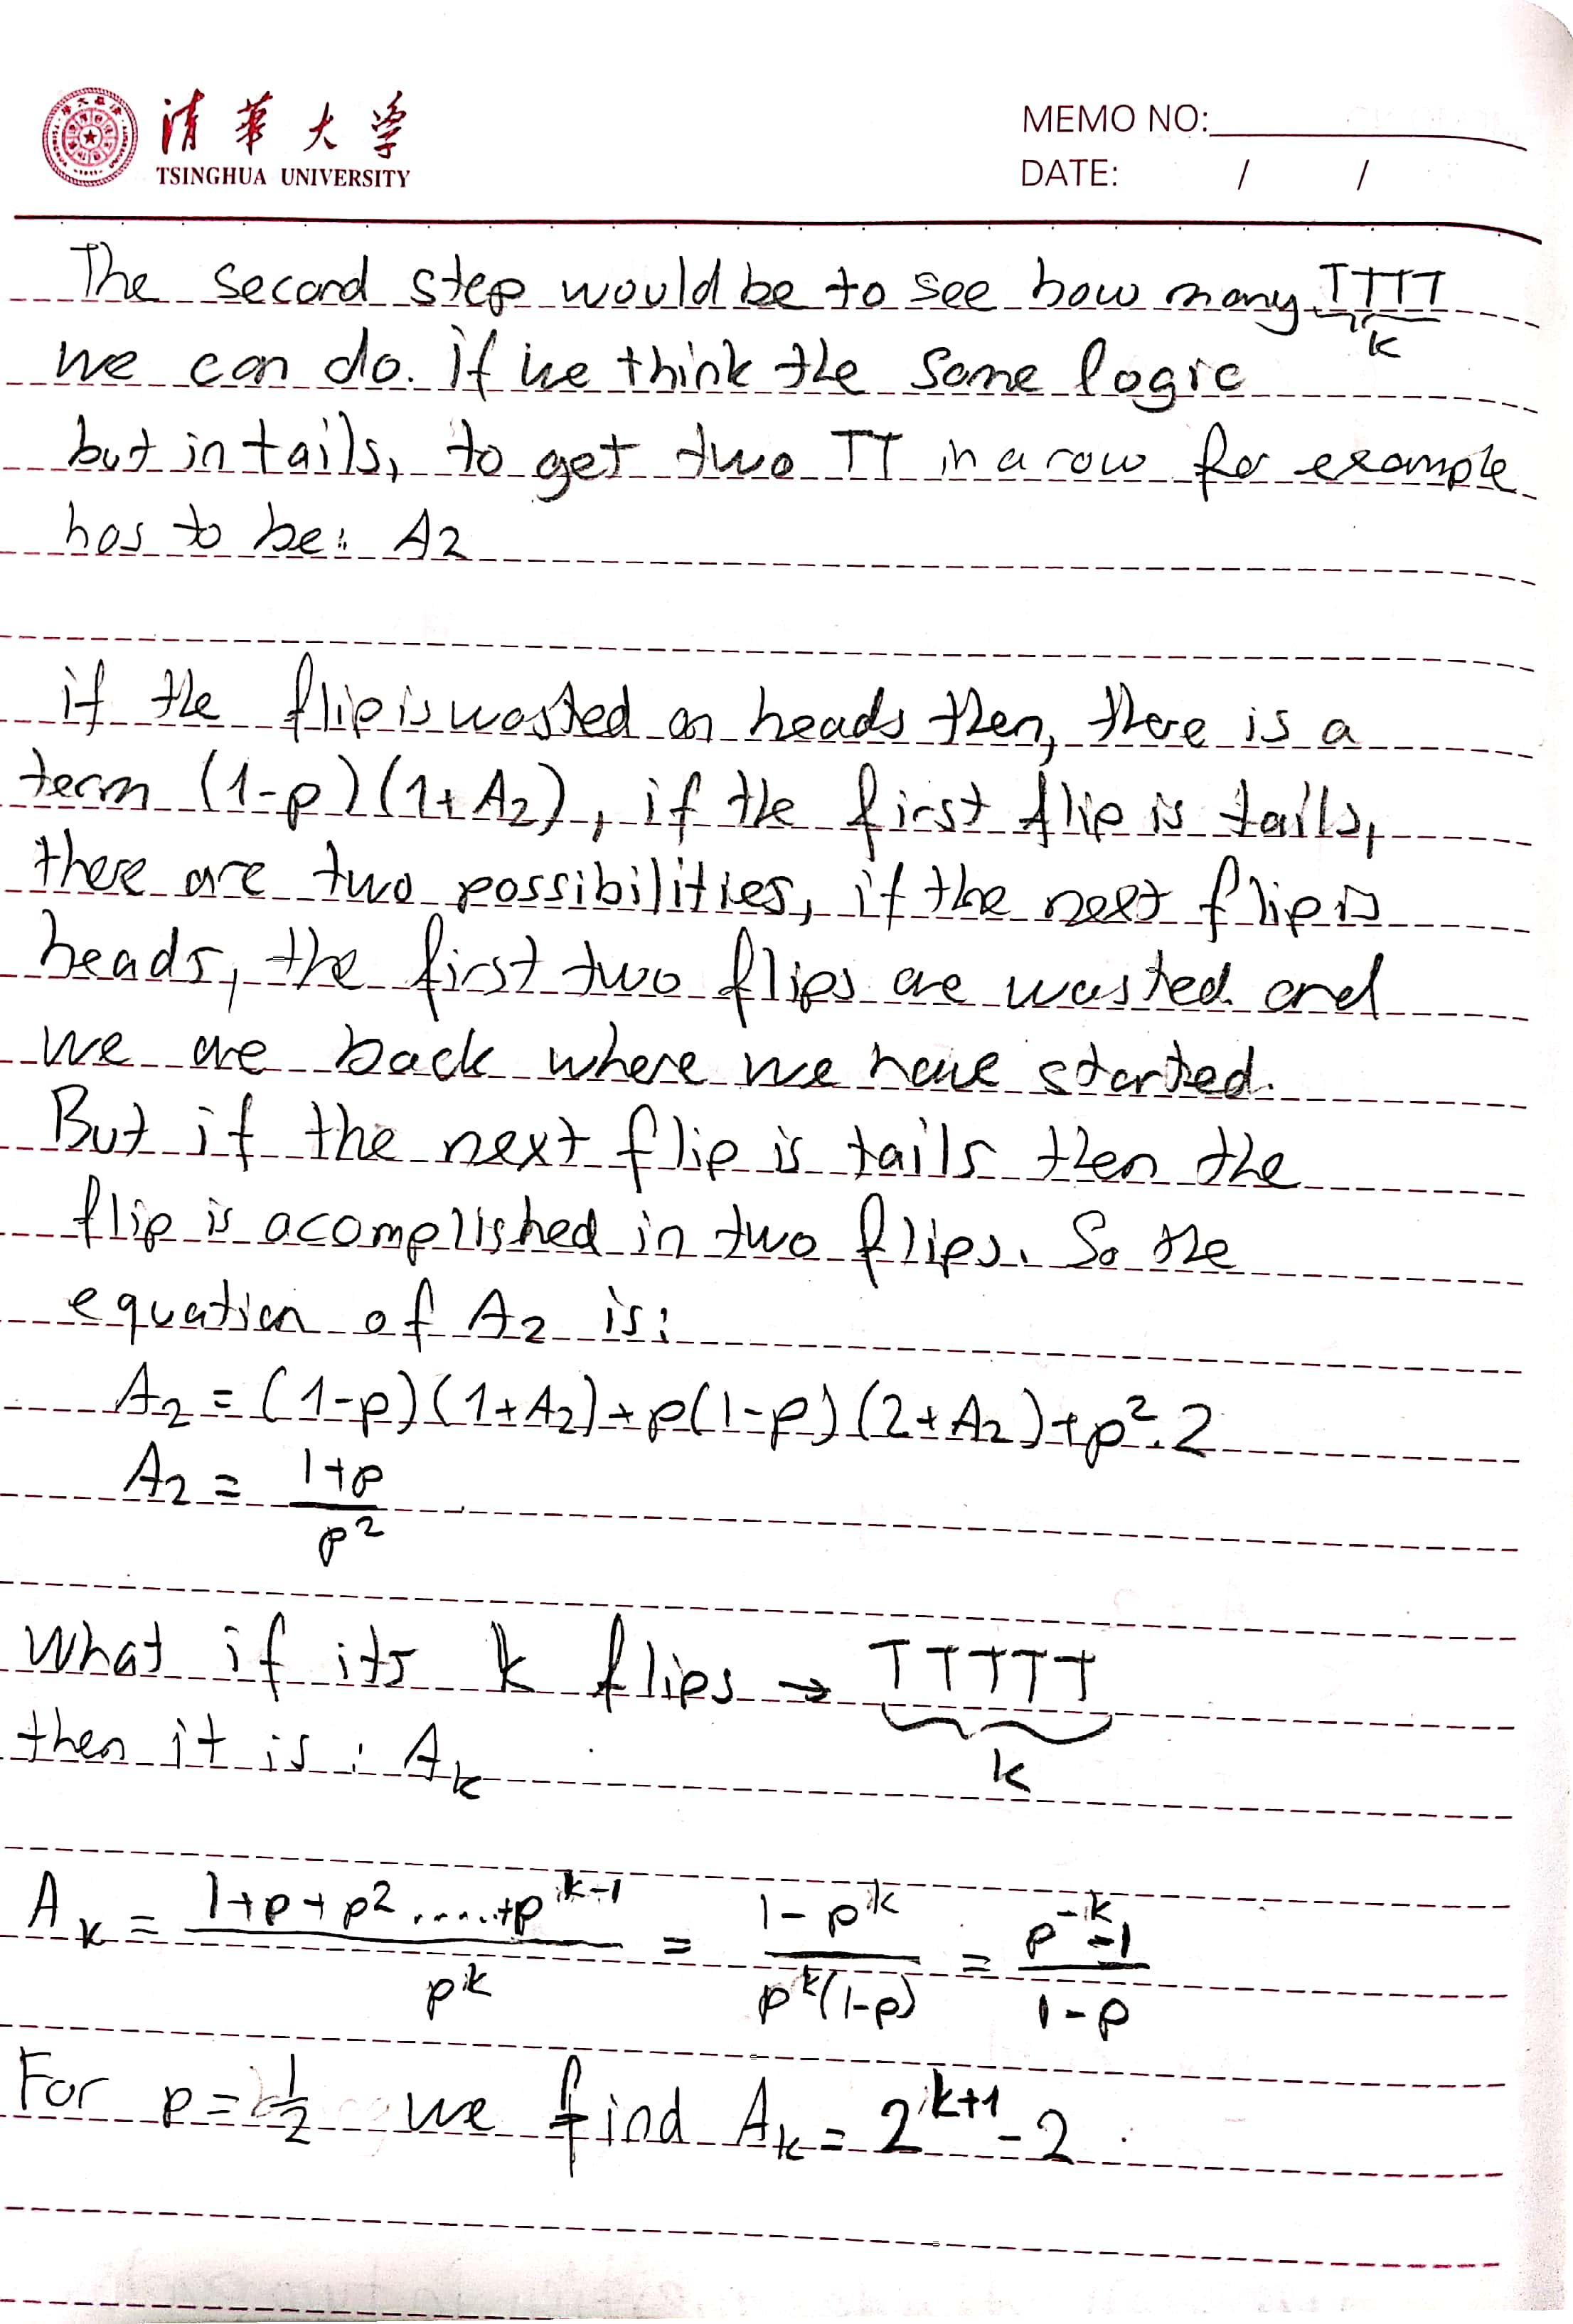 清華大学
TSINGHUA UNIVERSITY
MEMO NO:
DATE: / /
The second step would be to see how many TTTT
k
we can do. if we think the same logic
but in tails, to get two TT in a row for example
has to be: A2
if the flip is wasted on heads then, there is a
term (1-p)(1+A2), if the first flip is tails,
there are two possibilities, if the next flip is
heads, the first two flips are wasted and
we are back where we have started.
But if the next flip is tails then the
flip is acomplished in two flips. So the
equation of A2 is:
A2 = (1-p)(1+A2)+p(1-p)(2+A2)+p².2
A2 = (1+p)/p²
What if its k flips → TTTTT
k
then it is: Ak
Ak = (1+p+p².....+p^(k-1))/p^k = (1-p^k)/(p^k(1-p)) = (p^(-k)-1)/(1-p)
For p=1/2 we find Ak = 2^(k+1)-2